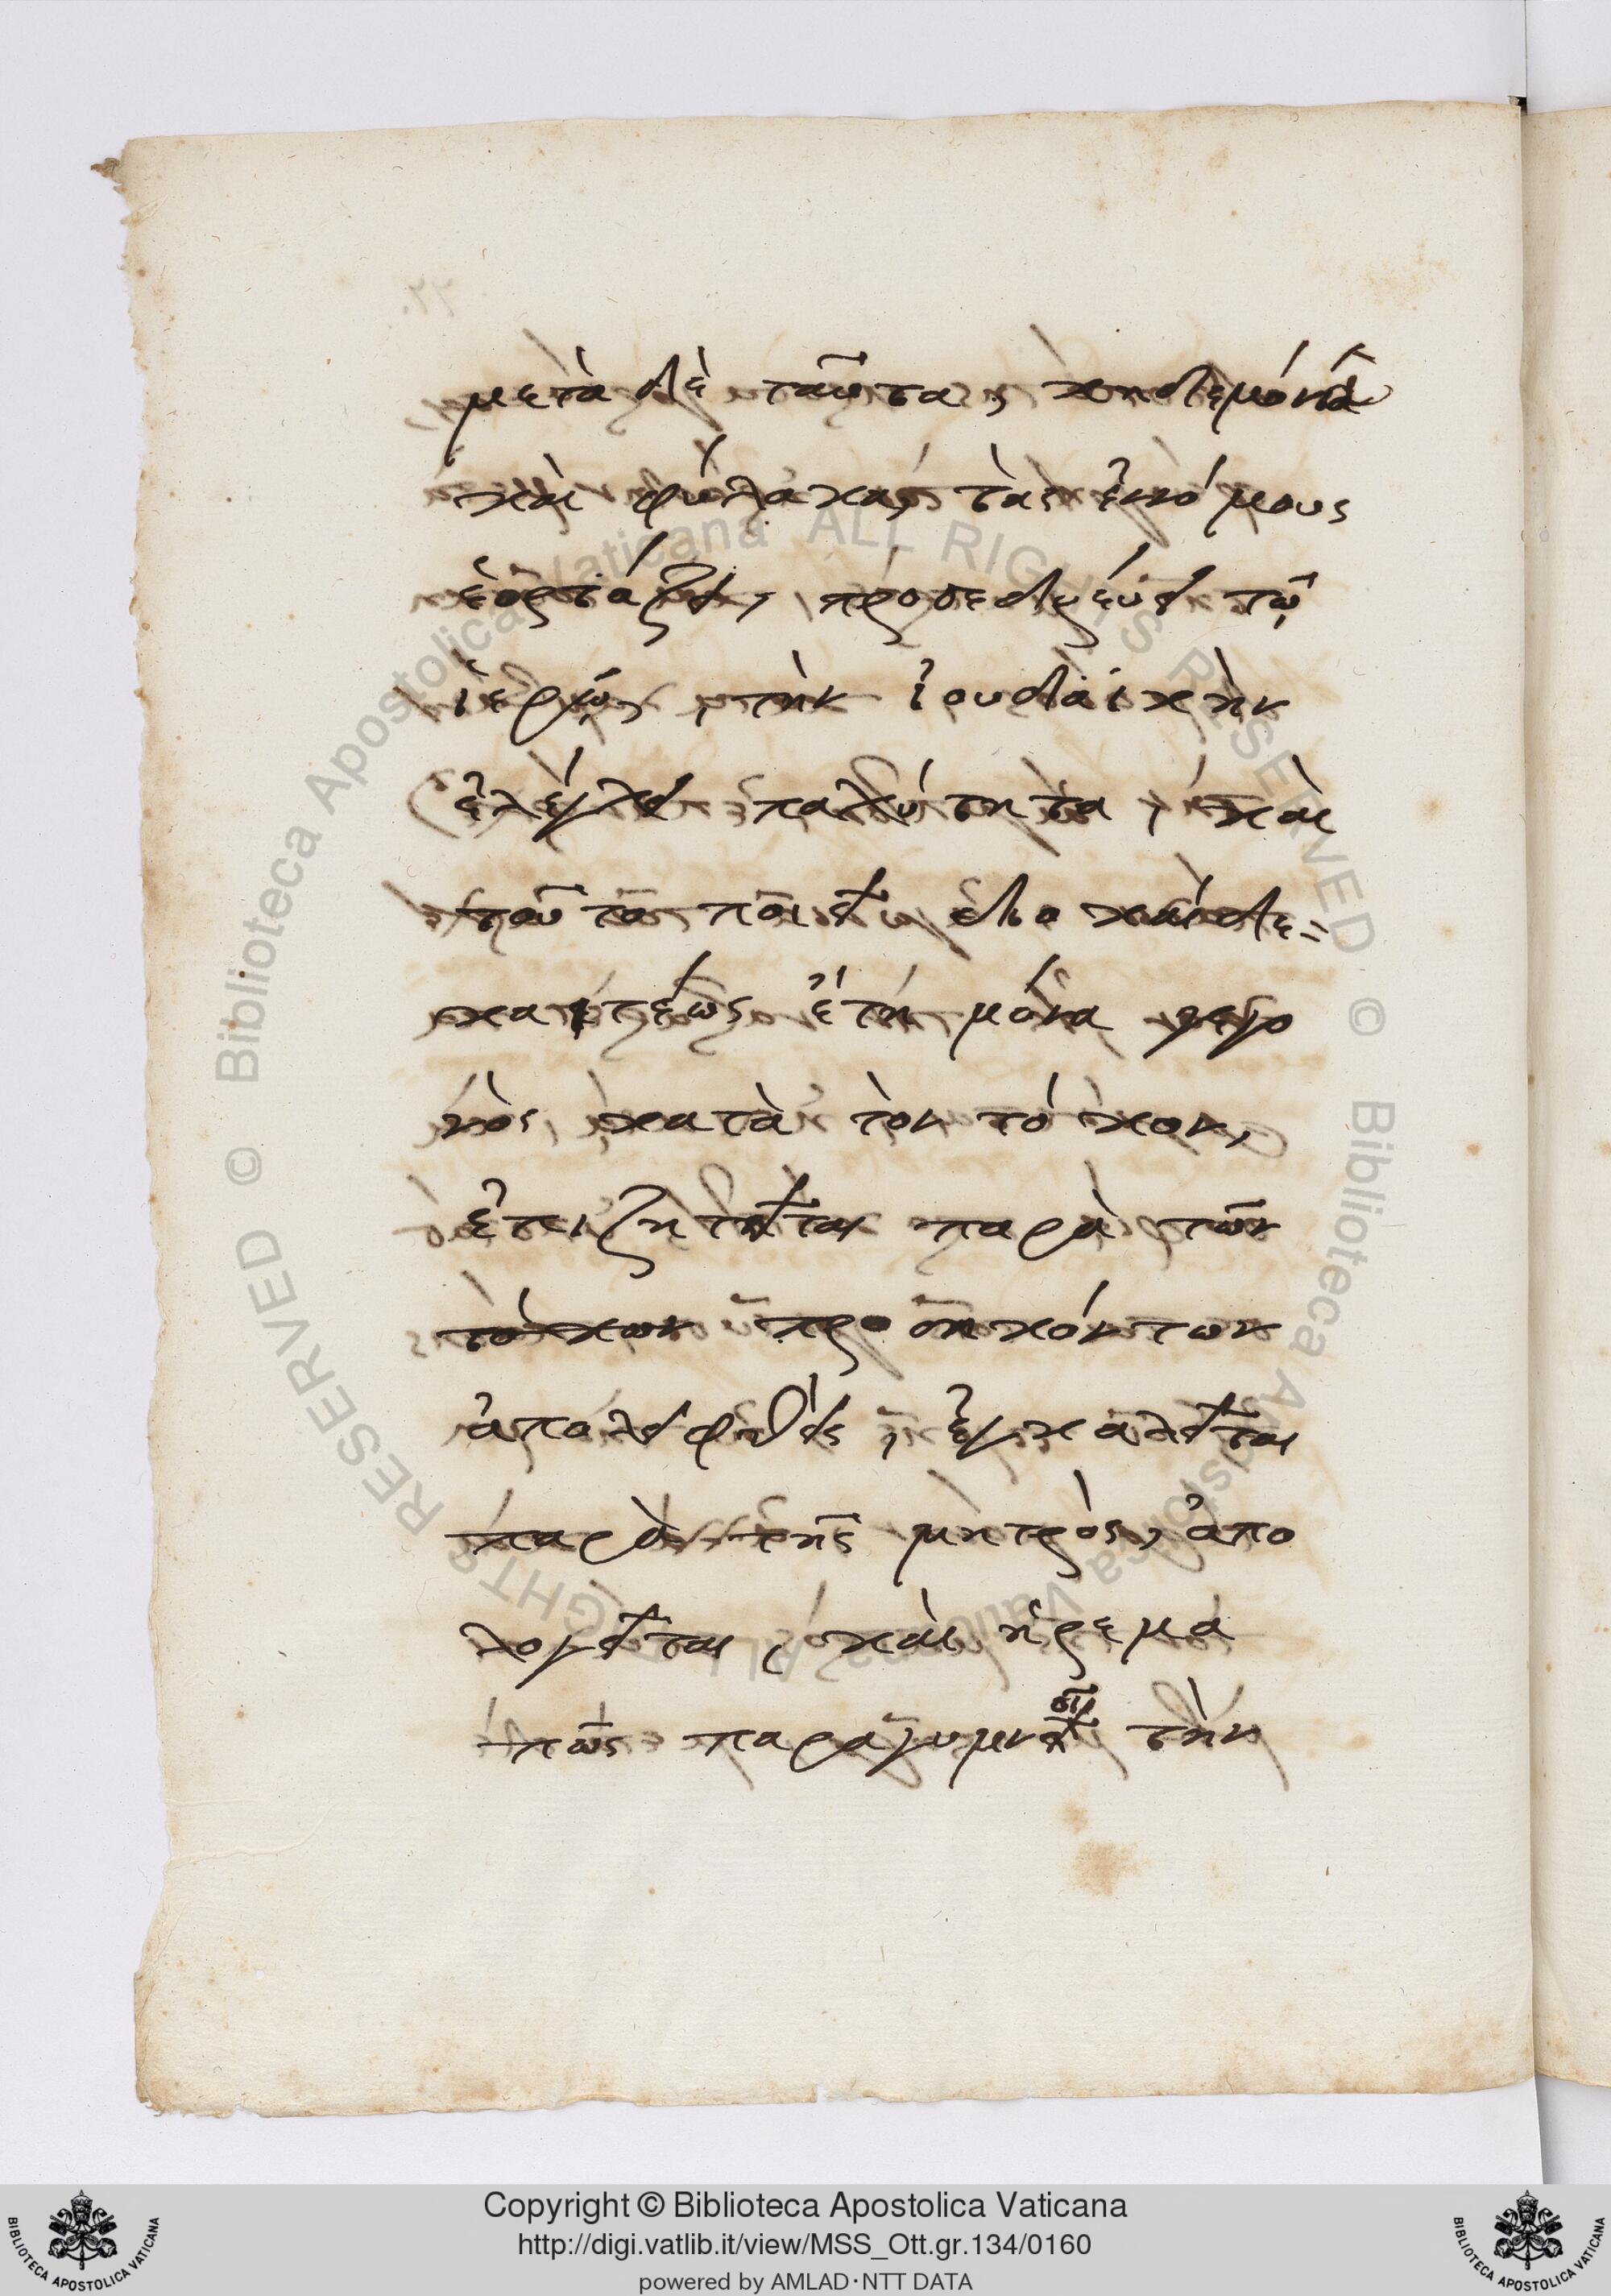 μετὰ δὲ ταῦτα, κηδεμόνα
καὶ φύλακας, τὰς ἐννόμους
ἑορτάζει, προσεδρεύει τῷ
ἱερῷ, τὴν ἰουδαϊκὴν
ἐλέγχει παχύτητα, καὶ
τοῦτο ποιεῖ δυο καίδε=
κα τέως ἔτη μόνα γεγο
νὸς κατὰ τὸν τόκον,
ἐπιζητεῖται παρὰ τῶν
τόκων προσηκόντων
ἀπολειφθεὶς, ἐγκαλεῖται
παρὰ τῆς μητρὸς, ἀπο
λογεῖται, καὶ ἠρέμα
πῶς παραγυμνοῖ τὴν
Copyright © Biblioteca Apostolica Vaticana
http://digi.vatlib.it/view/MSS_Ott.gr.134/0160
powered by AMLAD·NTT DATA
BIBLIOTECA APOSTOLICA VATICANA
BIBLIOTECA APOSTOLICA VATICANA
© Biblioteca Apostolica Vaticana ALL RIGHTS RESERVED
© Biblioteca Apostolica Vaticana ALL RIGHTS RESERVED